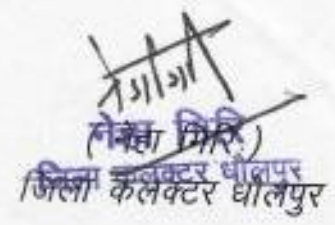 नेहा गिरि
( नेहा गिरि )
जिला कलेक्टर धौलपुर
जिला कलेक्टर धौलपुर